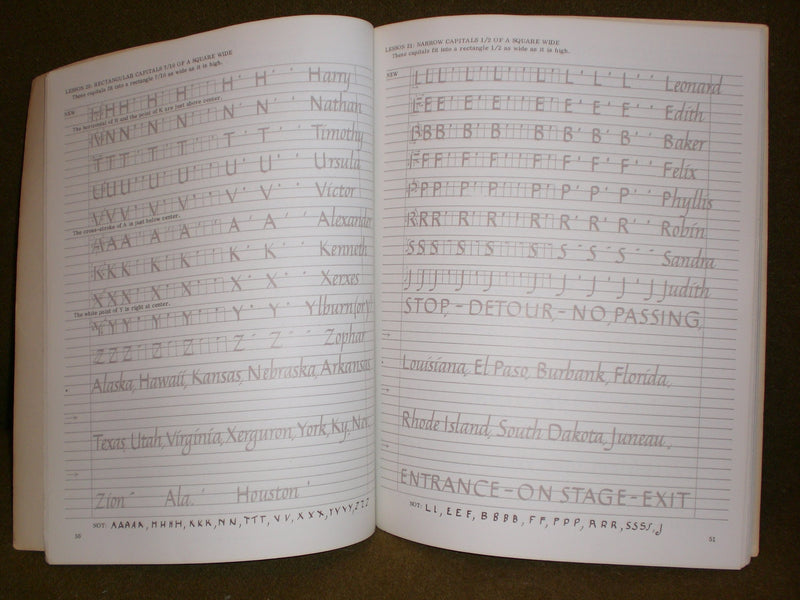 LESSON 20: RECTANGULAR CAPITALS 7/10 OF A SQUARE WIDE
These capitals fit into a rectangle 7/10 as wide as it is high.
NEW
HHH H H H' H' Harry
The horizontal of H and the point of K are just above center.
NN N N N' N' Nathan
TTT T T T' T' Timothy
UUU U U U' U' Ursula
VVV V V V' V' Victor
The cross-stroke of A is just below center.
AAA A A A' A' Alexander
KKK K K K' K' Kenneth
XXX X X X' X' Xerxes
The white point of Y is right at center.
YYY Y Y Y' Y' Ylburn
ZZZ Z Z Z' Z' Zophar
Alaska, Hawaii, Kansas, Nebraska, Arkansas,
Texas, Utah, Virginia, Xerguron, York, Ky., Nov.
Zion Ala. Houston
NOT: AAAAA, HHHH, KKK, NN, TTT, VV, XXX, YYYY, ZZZ
50
LESSON 21: NARROW CAPITALS 1/2 OF A SQUARE WIDE
These capitals fit into a rectangle 1/2 as wide as it is high.
NEW
LLL L L L L' L' Leonard
EEE E E E' E' E' Edith
BBB B B B' B' B' Baker
FFF F F F' F' F' Felix
PPP P P P' P' P' Phyllis
RRR R R R' R' R' Robin
SSS S S S' S' S' Sandra
JJJ J J J' J' J J Judith
STOP, - DETOUR, - NO, PASSING,
Louisiana, El Paso, Burbank, Florida,
Rhode Island, South Dakota, Juneau,
ENTRANCE - ON STAGE - EXIT
NOT: LL, EEF, BBBB, FF, PPP, RRR, SSSS, J
51